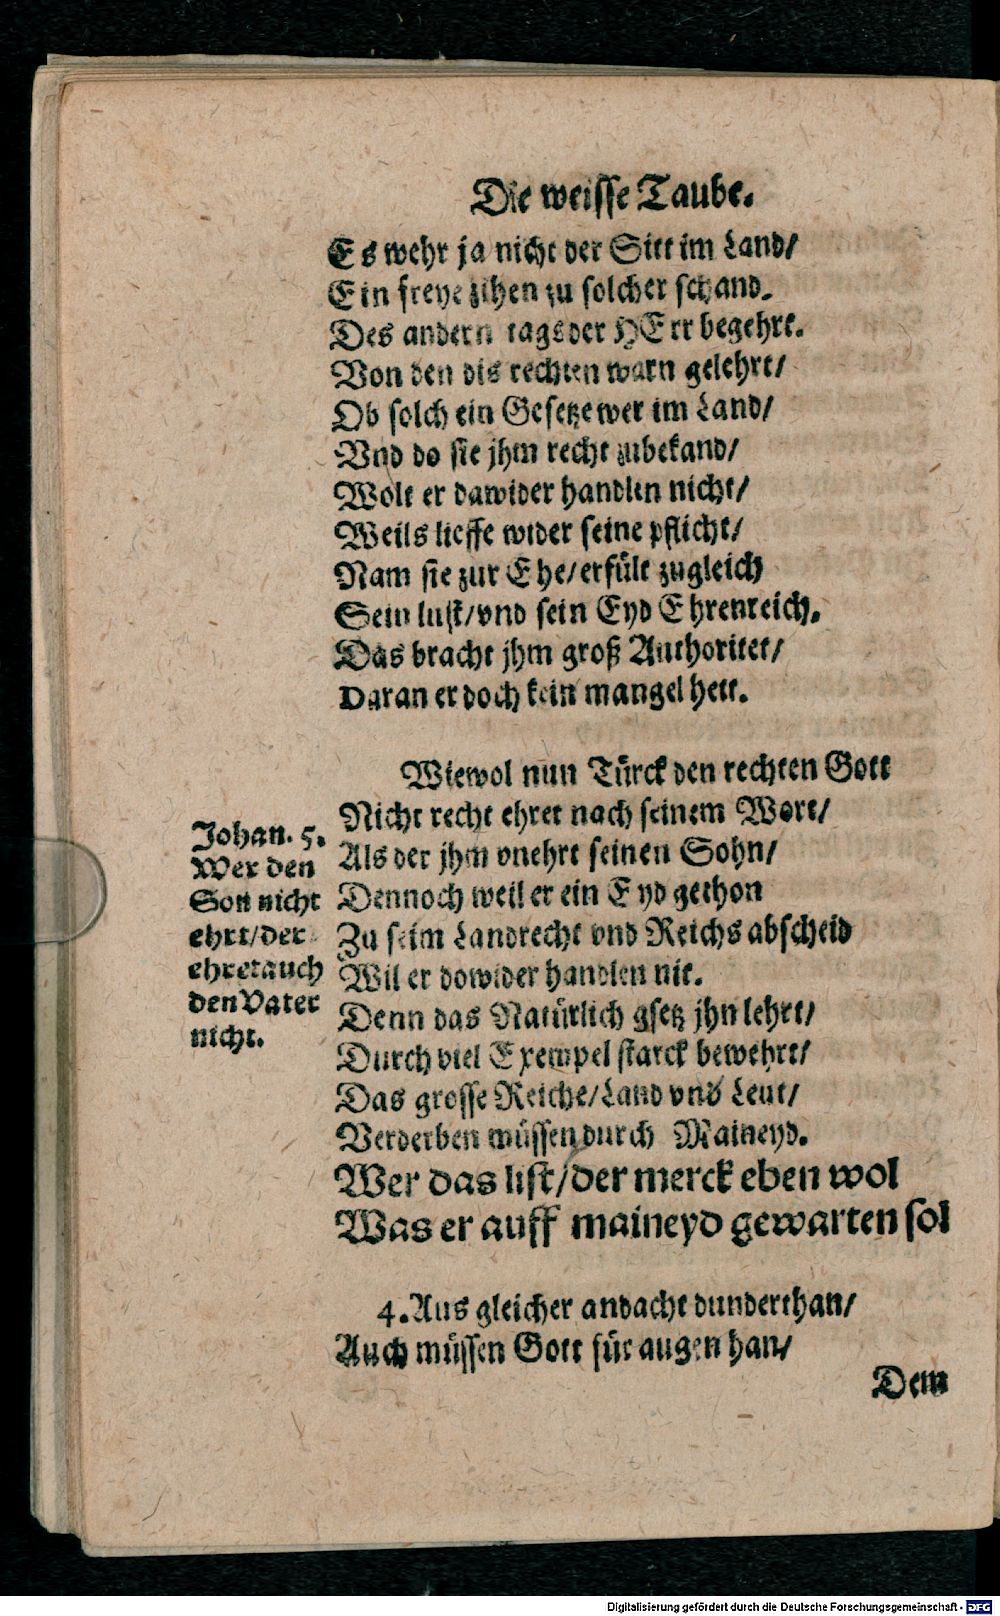 Die weisse Taube.
Es wehr ja nicht der Sitt im Land/
Ein freye zihen zu solcher schand.
Des andern tags der HErr begehrt.
Von den dis rechten warn gelehrt/
Ob solch ein Gesetze wer im Land/
Vnd do sie jhm recht zubekand/
Wolt er dawider handlen nicht/
Weils lieffe wider seine pflicht/
Nam sie zur Ehe/erfült zugleich
Sein lust/vnd sein Eyd Ehrenreich.
Das bracht jhm groß Authoritet/
Daran er doch kein mangel hett.
Wiewol nun Türck den rechten Gott
Nicht recht ehret nach seinem Wort/
Als der jhm vnehrt seinen Sohn/
Dennoch weil er ein Eyd gethon
Zu seim Landrecht vnd Reichs abscheid
Wil er dowider handlen nit.
Denn das Natürlich gsetz jhn lehrt/
Durch viel Exempel starck bewehrt/
Das grosse Reiche/Land vnd Leut/
Verderben müssen durch Maineyd.
Wer das list/der merck eben wol
Was er auff maineyd gewarten sol
Johan. 5.
Wer den
Son nicht
ehrt/der
ehret auch
den Vater
nicht.
4. Aus gleicher andacht dunderthan/
Auch müssen Gott für augen han/
Dem
Digitalisierung gefördert durch die Deutsche Forschungsgemeinschaft - DFG